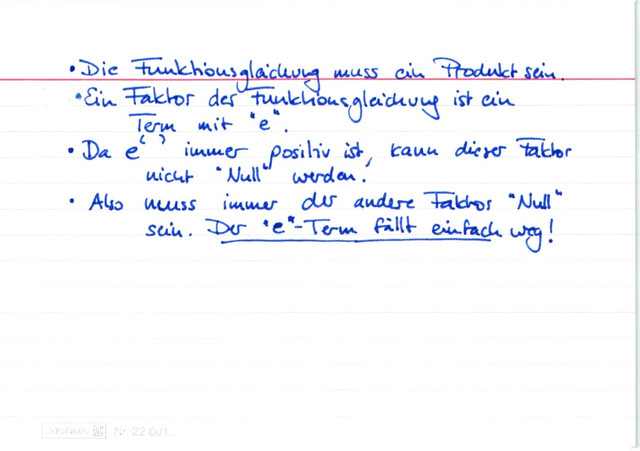 • Die Funktionsgleichung muss ein Produkt sein.
• Ein Faktor der Funktionsgleichung ist ein
Term mit "e".
• Da e^( ) immer positiv ist, kann dieser Faktor
nicht "Null" werden.
• Also muss immer der andere Faktor "Null"
sein. Der "e"-Term fällt einfach weg!
Nr. 22 601